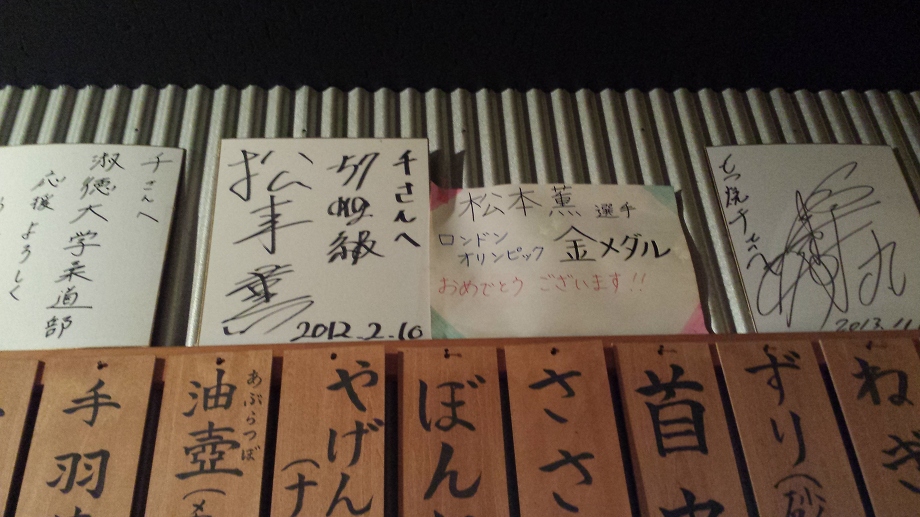 千さんへ
淑徳大学柔道部
応援よろしく
千さんへ
57kg級
松本薫
2012.2.10
松本薫 選手
ロンドン
オリンピック 金メダル
おめでとうございます!!
2013.11
手羽
油壺
あぶらつぼ
やげん
ぼん
ささ
首
ずり(砂
ねぎ